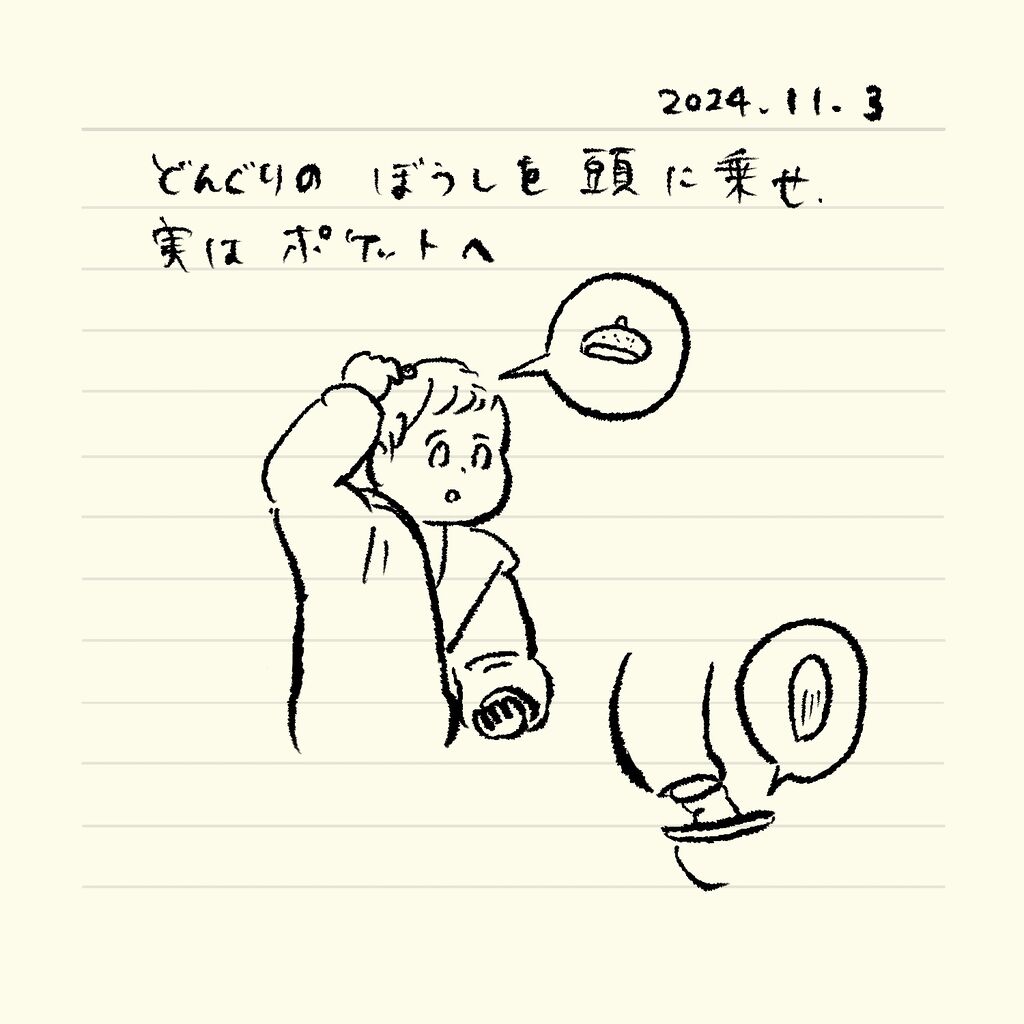 2024.11.3
どんぐりの ぼうしを 頭に乗せ.
実は ポケットへ